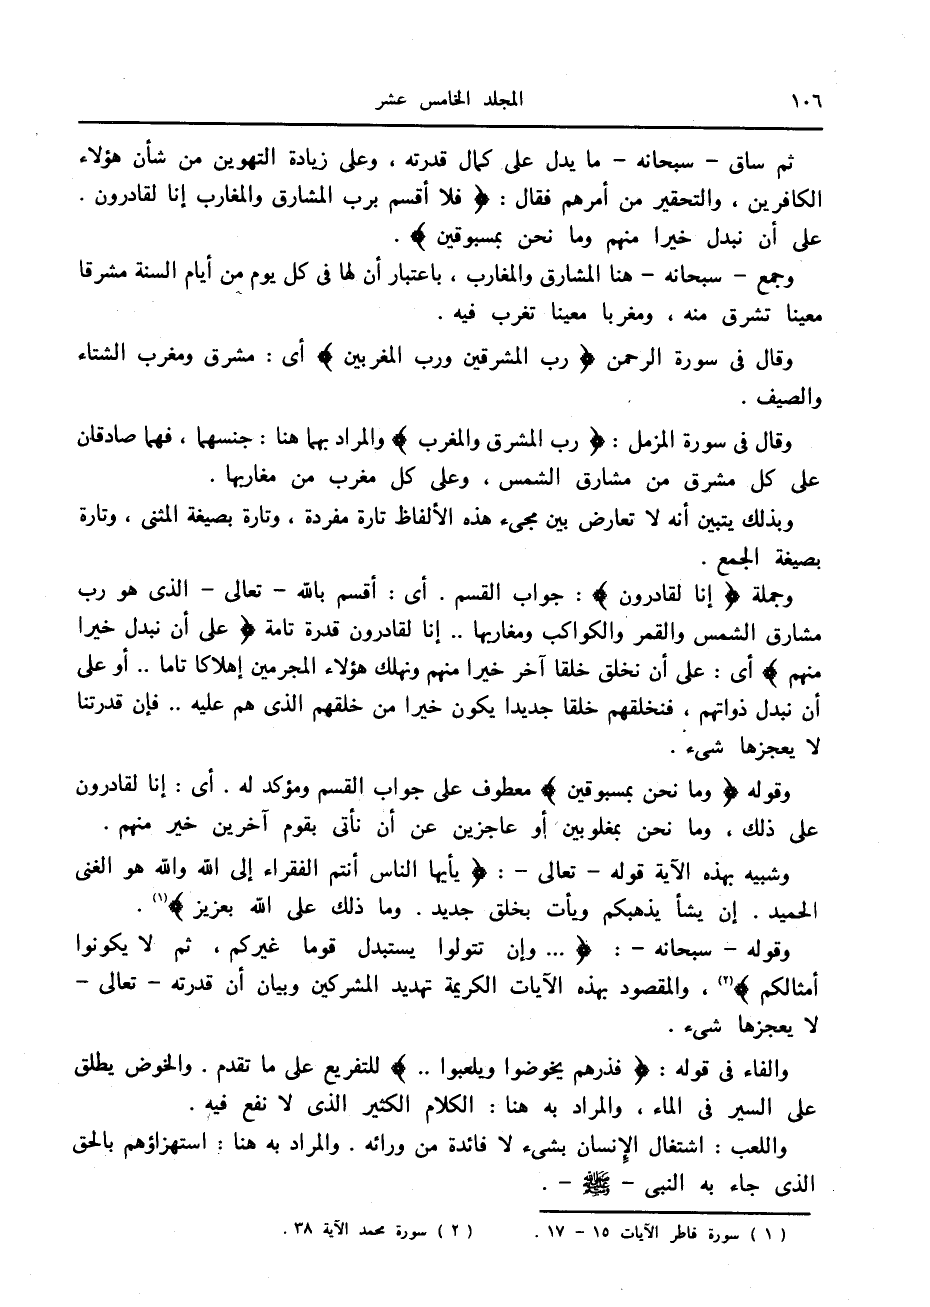 ١٠٦ المجلد الخامس عشر
ثم ساق – سبحانه – ما يدل على كمال قدرته ، وعلى زيادة التهوين من شأن هؤلاء
الكافرين ، والتحقير من أمرهم فقال : ﴿ فلا أقسم برب المشارق والمغارب إنا لقادرون .
على أن نبدل خيرا منهم وما نحن بمسبوقين ﴾ .
وجمع – سبحانه – هنا المشارق والمغارب ، باعتبار أن لها فى كل يوم من أيام السنة مشرقا
معينا تشرق منه ، ومغربا معينا تغرب فيه .
وقال فى سورة الرحمن ﴿ رب المشرقين ورب المغربين ﴾ أى : مشرق ومغرب الشتاء
والصيف .
وقال فى سورة المزمل : ﴿ رب المشرق والمغرب ﴾ والمراد بهما هنا : جنسهما ، فهما صادقان
على كل مشرق من مشارق الشمس ، وعلى كل مغرب من مغاربها .
وبذلك يتبين أنه لا تعارض بين مجىء هذه الألفاظ تارة مفردة ، وتارة بصيغة المثنى ، وتارة
بصيغة الجمع .
وجملة ﴿ إنا لقادرون ﴾ : جواب القسم . أى : أقسم بالله – تعالى – الذى هو رب
مشارق الشمس والقمر والكواكب ومغاربها .. إنا لقادرون قدرة تامة ﴿ على أن نبدل خيرا
منهم ﴾ أى : على أن نخلق خلقا آخر خيرا منهم ونهلك هؤلاء المجرمين إهلاكا تاما .. أو على
أن نبدل ذواتهم ، فنخلقهم خلقا جديدا يكون خيرا من خلقهم الذى هم عليه .. فإن قدرتنا
لا يعجزها شىء .
وقوله ﴿ وما نحن بمسبوقين ﴾ معطوف على جواب القسم ومؤكد له . أى : إنا لقادرون
على ذلك ، وما نحن بمغلوبين أو عاجزين عن أن نأتى بقوم آخرين خير منهم .
وشبيه بهذه الآية قوله – تعالى – : ﴿ يأيها الناس أنتم الفقراء إلى الله والله هو الغنى
الحميد . إن يشأ يذهبكم ويأت بخلق جديد . وما ذلك على الله بعزيز ﴾(١) .
وقوله – سبحانه – : ﴿ ... وإن تتولوا يستبدل قوما غيركم ، ثم لا يكونوا
أمثالكم ﴾(٢) ، والمقصود بهذه الآيات الكريمة تهديد المشركين وبيان أن قدرته – تعالى –
لا يعجزها شىء .
والفاء فى قوله : ﴿ فذرهم يخوضوا ويلعبوا .. ﴾ للتفريع على ما تقدم . والخوض يطلق
على السير فى الماء ، والمراد به هنا : الكلام الكثير الذى لا نفع فيه .
واللعب : اشتغال الإنسان بشىء لا فائدة من ورائه . والمراد به هنا : استهزاؤهم بالحق
الذى جاء به النبى – ﷺ – .
( ١ ) سورة فاطر الآيات ١٥ – ١٧ . ( ٢ ) سورة محمد الآية ٣٨ .